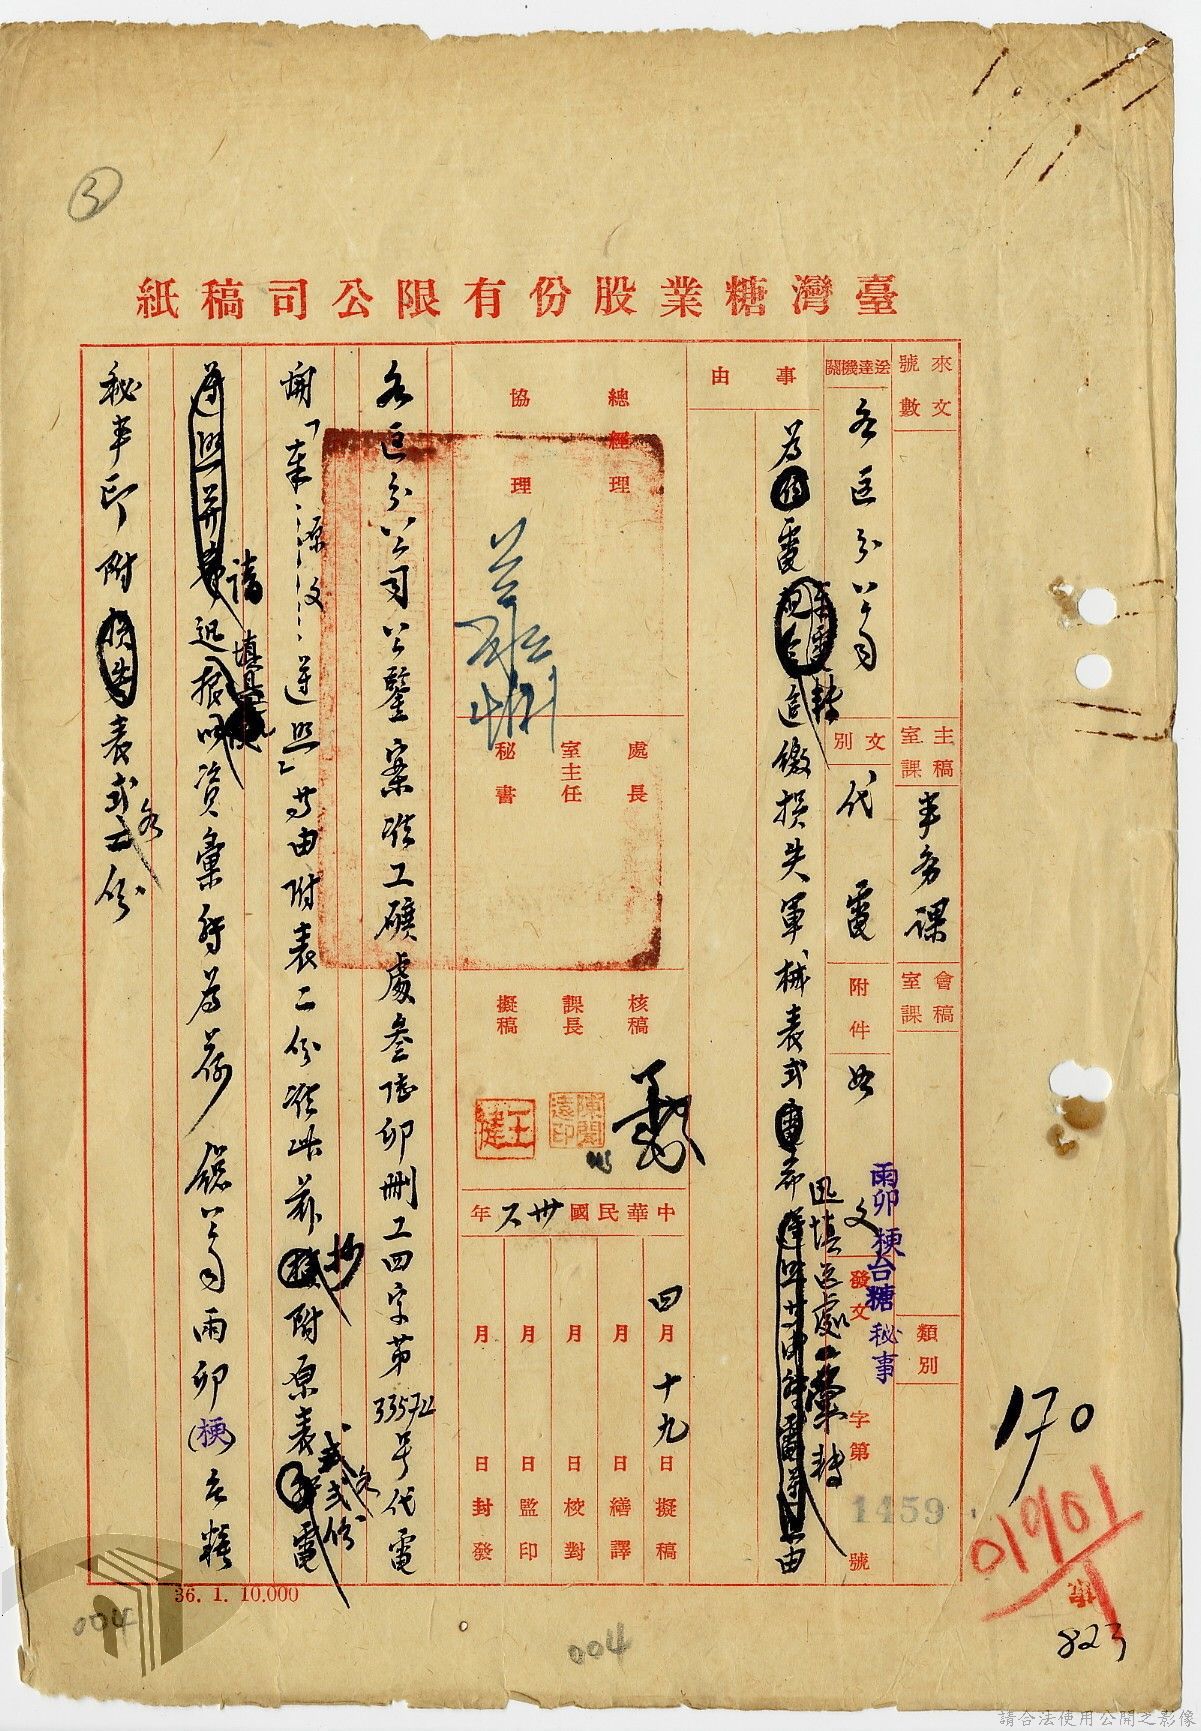 臺灣糖業股份有限公司稿紙
來文號數
主稿室課
事務課
會稿室課
類別
送達機關
各區分公司
文別
代電
附件
如文
發文
雨卯梗台糖秘事
字第
1459
號
事由
為
電
轉
繳損失軍械表式
希
迅填送處
彙轉
由
總經理
協理
處長
室主任
秘書
核稿
課長
擬稿
陳開遠印
王健
中華民國卅六年
四月十九日擬稿
月日繕譯
月日校對
月日監印
月日封發
各區分公司公鑒案准工礦處叁陸卯刪工四字第33572號代電
開「車...原文...遵照」等由附表二份准此茲抄附原表式弍份電
請
填
迅報以資彙轉為荷總公司雨卯(梗)台糖
秘事印附表式各份
36. 1. 10.000
3
170
01901
823
004
004
請合法使用公開之影像